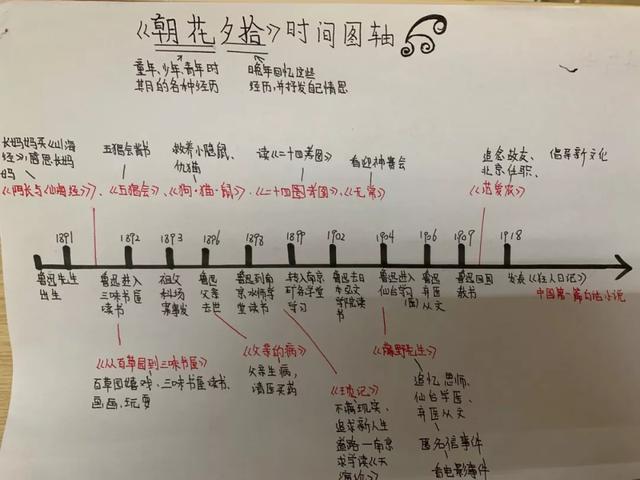 《朝花夕拾》时间图轴
童年、少年、青年时
期的各种经历
晚年回忆这些
经历,并抒发自己情思
长妈妈买《山海
经》,感思长妈
妈
五猖会背书
救养小隐鼠、
仇猫
读《二十四孝图》
看迎神赛会
追念故友、
北京任职、
倡导新文化
《阿长与《山海经》》、《五猖会》、《狗·猫·鼠》、《二十四孝图》、《无常》
《范爱农》
1891 1892 1893 1896 1898 1899 1902 1904 1906 1909 1918
鲁迅先生
出生
鲁迅进入
三味书屋
读书
祖父
科场
案事发
鲁迅
父亲
去世
鲁迅到南
京水师学
堂读书
转入南京
矿务学堂
学习
鲁迅去日
本弘文
学院读
书
鲁迅进入
仙台学习
(医)
鲁迅
弃医
从文
鲁迅回国
教书
发表《狂人日记》
中国第一篇白话小说
《从百草园到三味书屋》
百草园嬉戏、三味书屋读书、
画画、玩耍
《父亲的病》
父亲生病,
请医买药
《琐记》
不满现实、
追求新人生
道路—南京
求学读《天
演论》
《藤野先生》
追忆恩师、
仙台学医、
弃医从文
匿名信事件
看电影事件